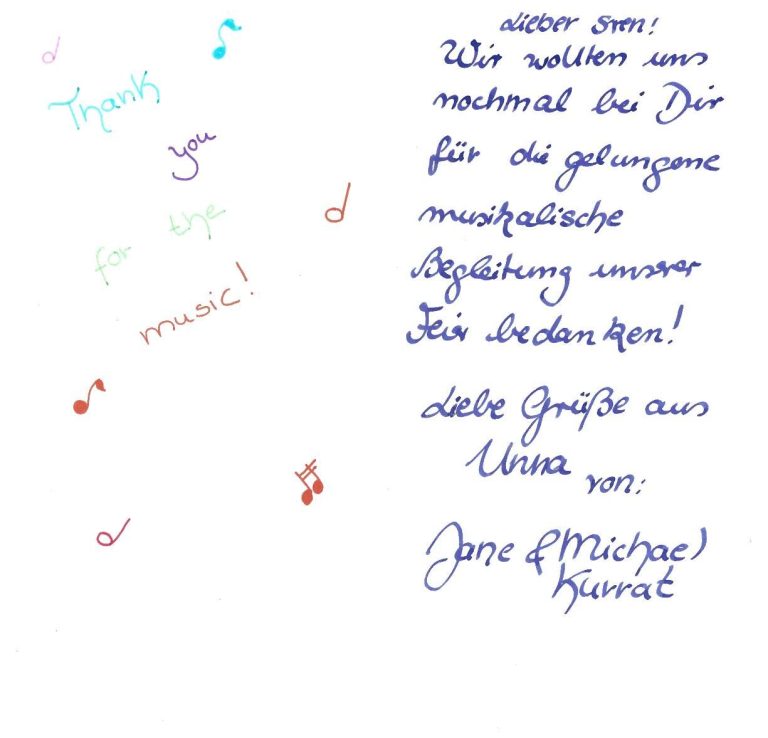 Thank
you
for the
music!
Lieber Sven!
Wir wollten uns
nochmal bei Dir
für die gelungene
musikalische
Begleitung unserer
Feier bedanken!
Liebe Grüße aus
Unna von:
Jane & Michael
Kurrat